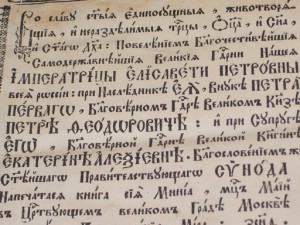 Во славу ст҃ыѧ єдиносꙋщныѧ, животворѧ-
щїѧ, и нераздѣлимыѧ трⷪ҇цы, Ѻ҆ц҃а̀, и Сн҃а,
и ст҃а́гѡ Дх҃а: Повелѣнїемъ Благочестивѣйшїѧ
Самодержавнѣйшїѧ Великїѧ Гдⷭ҇рни Нашеѧ
ІМПЕРАТРИЦЫ ЕЛІСАВЕТИ ПЕТРОВНЫ
всеѧ рѡссїи: при Наслѣдникѣ ЕѦ, Внꙋкѣ ПЕТРА
ПЕРВАГѠ, Благовѣрномъ Гдⷭ҇рѣ Великомъ Кнѧзѣ
ПЕТРѢ ѲЕОДѠРОВИЧѢ: и при Сꙋпрꙋгѣ
ЕГѠ, Благовѣрной Гдⷭ҇рнѣ Великой Кнѧгинѣ
ЕКАТЕРИНѢ АЛЕѮІЕВНѢ. Благословенїемъ же
Ст҃ѣйшагѡ Правителствꙋющагѡ СѴНОДА
Напечатасѧ книга сїѧ Минїа, мцⷭ҇ъ Маїй
въ Царствꙋющемъ великомъ Градѣ Москвѣ